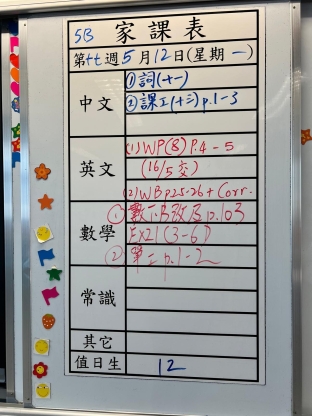 5B 家課表
第十七週5月12日(星期一)
中文 ①詞(十一)
②課工(十三)p.1-3
英文 (1) WP(8) P.4-5
(16/5交)
(2) WB p25-26 + Corr.
數學 ① 數下B改及p.103
Ex21 (3-6)
② 筆二 p.1-2
常識
其它
值日生 12